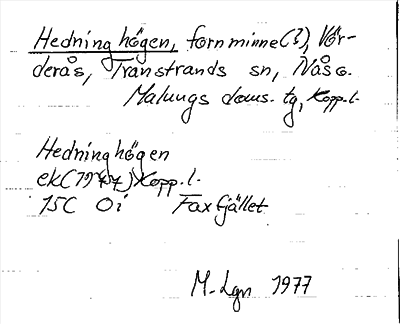 Hedninghögen, fornminne(?), Vör-
derås, Transtrands sn, Nås o.
Malungs doms. tg, Kopp. l.
Hedninghögen
ek(1974) Kopp. l.
15C Oi Faxfjället
M-Lgn 1977